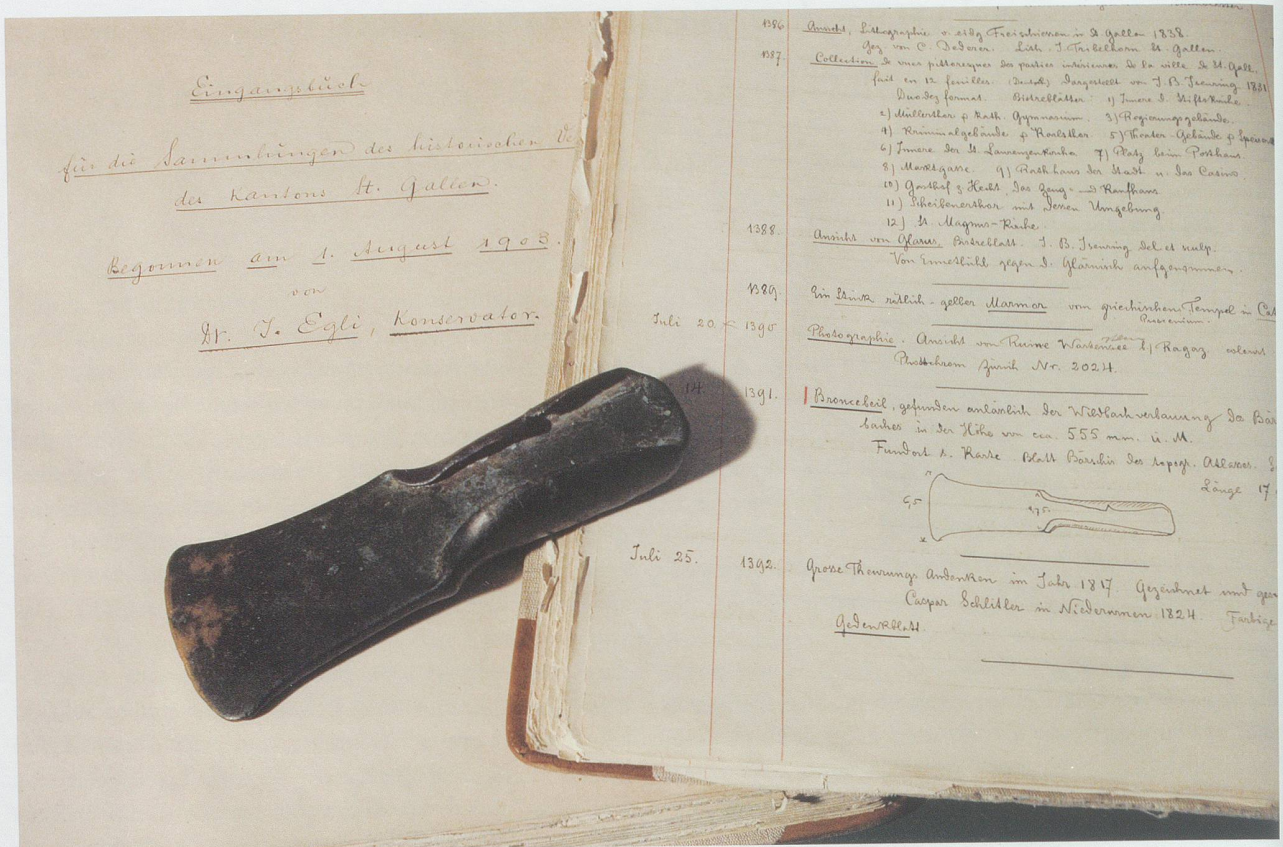 Eingangsbuch
für die Sammlungen des historischen
des Kantons St. Gallen.
Begonnen am 1. August 1903.
von
Dr. J. Egli, Konservator.
1386 Ansicht, Lithographie v. eidg Freischiessen in St Gallen 1838.
Gez. von C. Lith. J. Tribelhorn St. Gallen.
1387. Collection de vues pittoresques des parties intérieures de la ville de St. Gall,
fait en 12 feuilles. (Deutsch) Dargestellt von J. B. Isenring 1831
Duodez format. Bistreblätter 1) Innere d. Stiftskirche.
2) Müllerthor & Kath. Gymnasium. 3) Regierungsgebände.
4) Kriminalgebände & 5) Theater-Gebände &
6) Innere der St Laurenzenkirche 7) Platz beim Posthaus.
8) Marktgasse. 9) Rathhaus der Stadt u. das Casino.
10) Gasthof z Hecht. Das Zeug- und Kaufhaus.
11) Scheibenerthor mit dessen Umgebung
12) St. Magnus-Kirche.
1388. Ansicht von Glarus. Bistreblatt. J. B. Isenring del et sculp.
Von Ennetbühl gegen d. Glärnisch aufgenommen.
1389. Ein Stück rötlich-gelber Marmor vom griechischen Tempel in
Juli 20. 1390 Photographie. Ansicht von Ruine b/ Ragaz colorirt
Photochrom Zürich Nr. 2024.
14. 1391. Broncebeil, gefunden anlässlich der Wildbachverbauung des
baches in der Höhe von cca. 555 mm. ü. M.
Fundort s. Karte Blatt Bärschis des topogr. Atlasses.
Länge 17
6,5
Juli 25. 1392. Grosse Theurungs Andenken im Jahr 1817. Gezeichnet und
Caspar Schlitler in Niederurnen 1824.
Gedenkblatt.